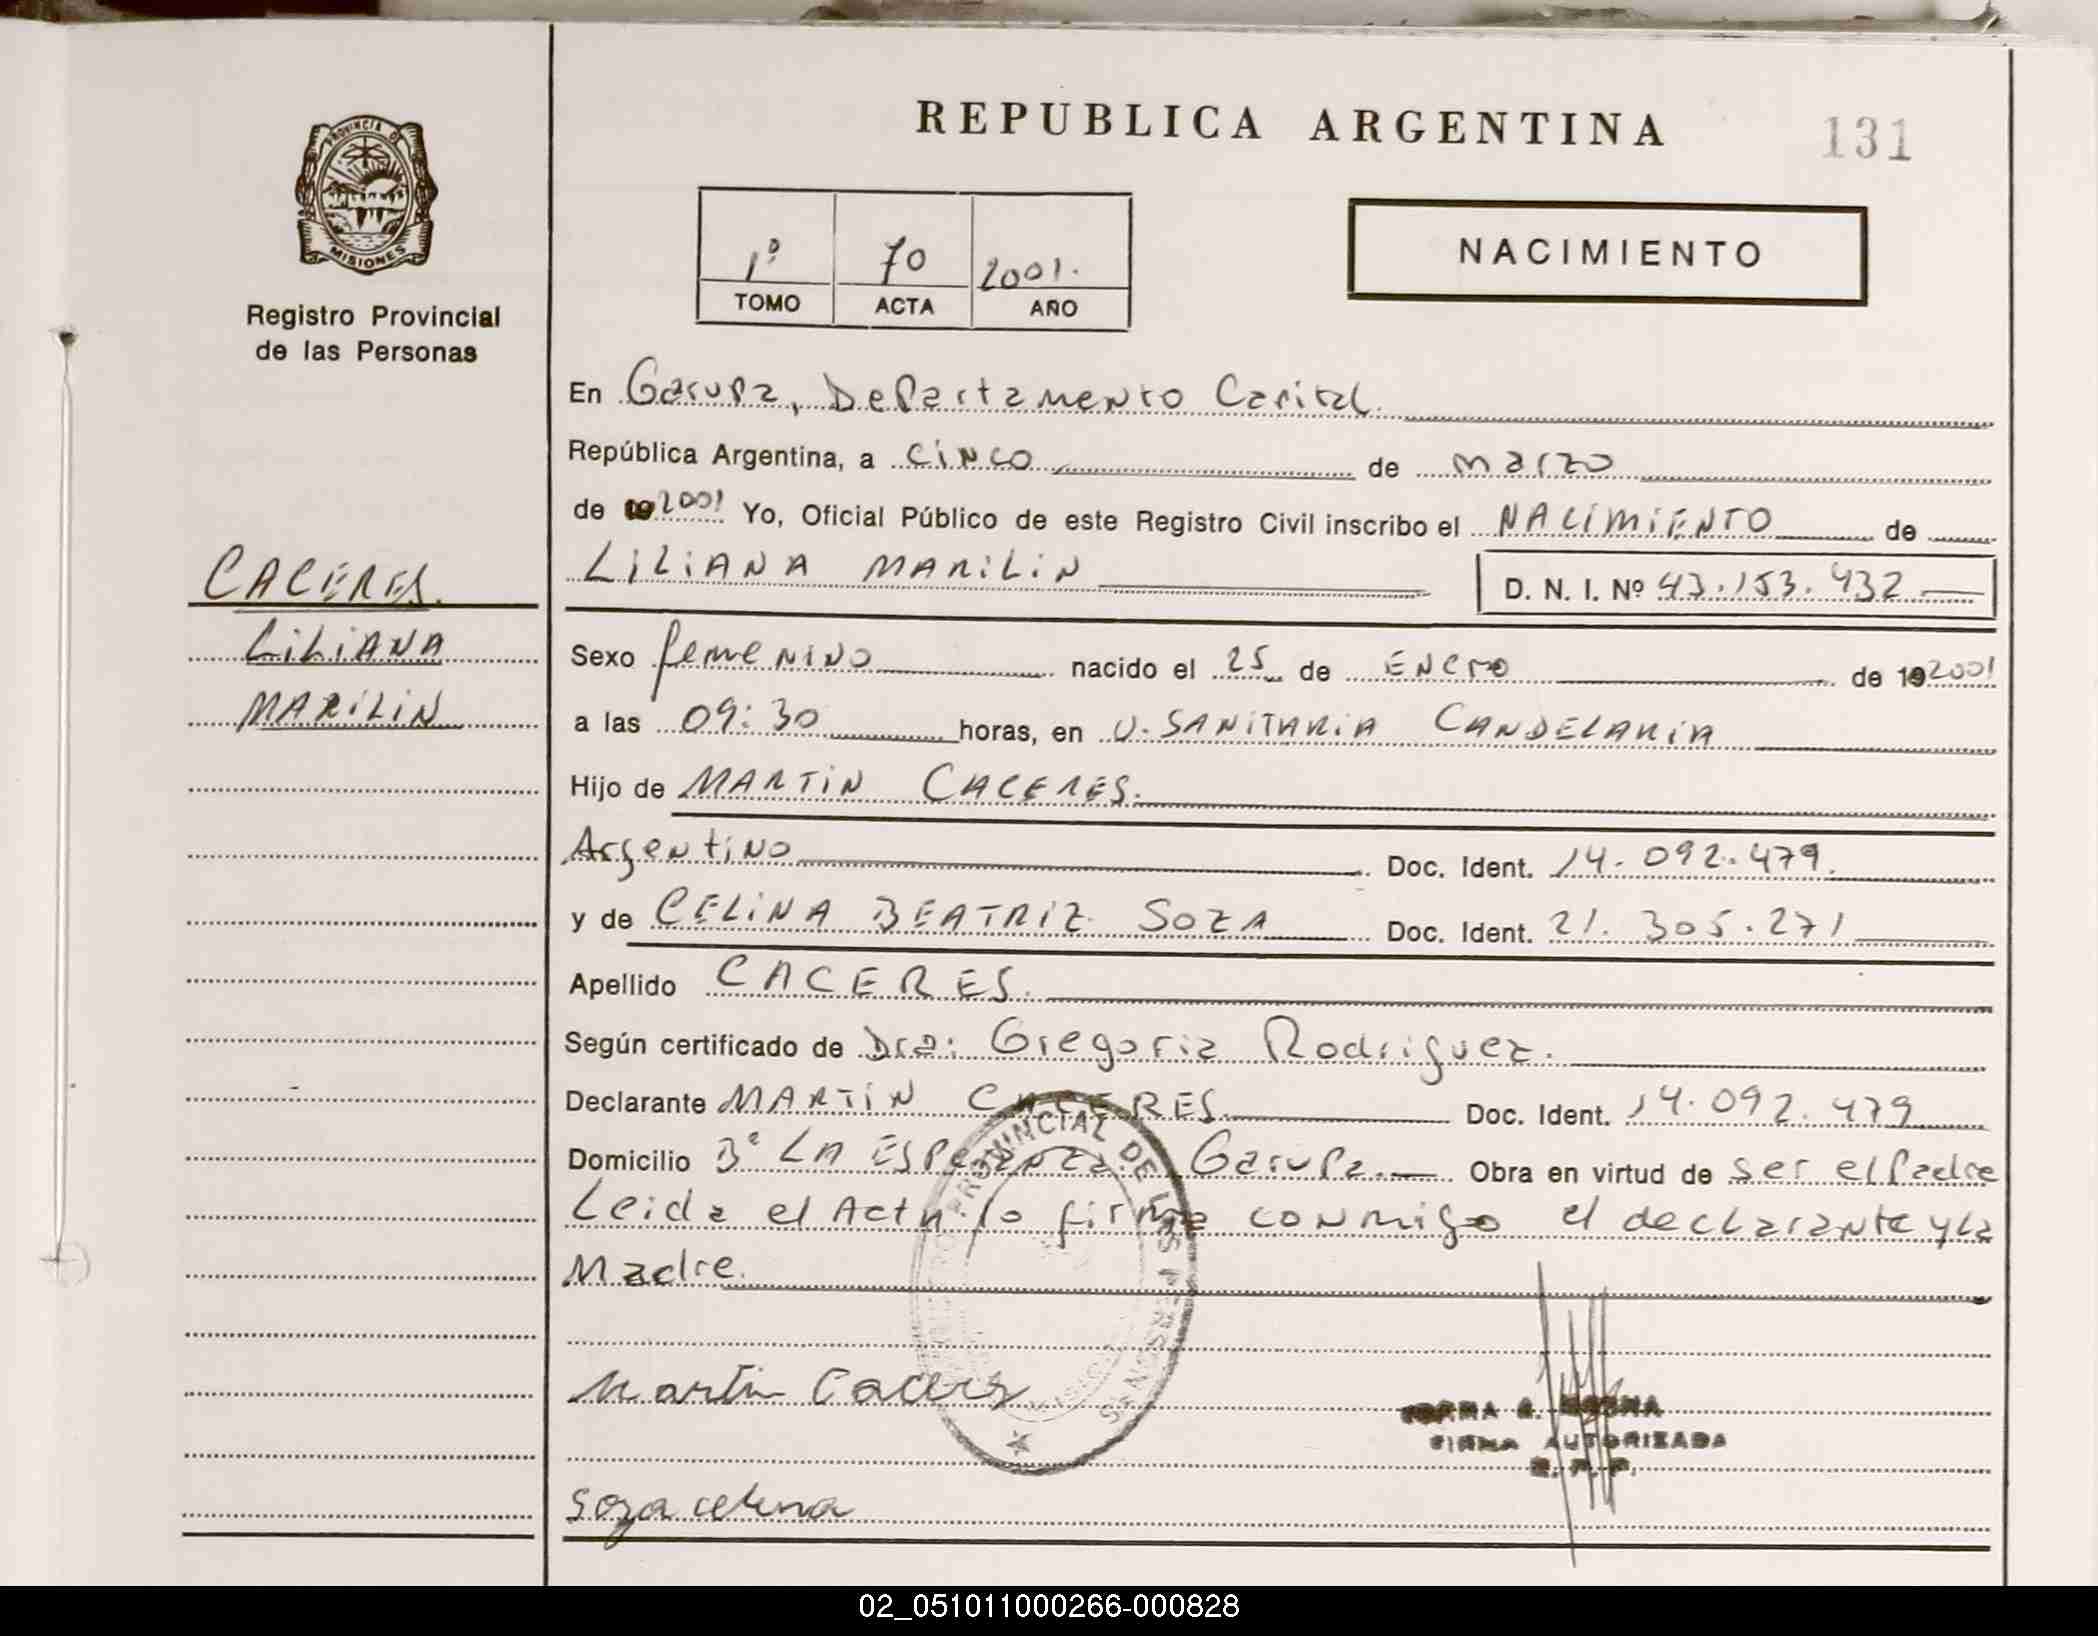 REPUBLICA ARGENTINA
131
PROVINCIA DE
MISIONES
Registro Provincial
de las Personas
1º 70 2001.
TOMO ACTA AÑO
NACIMIENTO
En Garupa, Departamento Capital.
República Argentina, a cinco de marzo
de 19 2001 Yo, Oficial Público de este Registro Civil inscribo el NACIMIENTO de
LILIANA MARILIN D. N. I. Nº 43.153.432
CACERES.
LILIANA
MARILIN
Sexo femenino nacido el 25 de ENERO de 19 2001
a las 09:30 horas, en U. SANITARIA CANDELARIA
Hijo de MARTIN CACERES.
Argentino Doc. Ident. 14.092.479.
y de CELINA BEATRIZ SOZA Doc. Ident. 21.305.271
Apellido CACERES.
Según certificado de Dra: Gregoria Rodriguez.
Declarante MARTIN CACERES Doc. Ident. 14.092.479
Domicilio Bº LA ESPERANZA. Garupa. Obra en virtud de ser el Padre
Leida el Acta lo firma conmigo el declarante y la
Madre.
PROVINCIAL DE LAS PERSONAS
Martin Caceres
FIRMA AUTORIZADA
R. P. P.
Soza celina
02_051011000266-000828